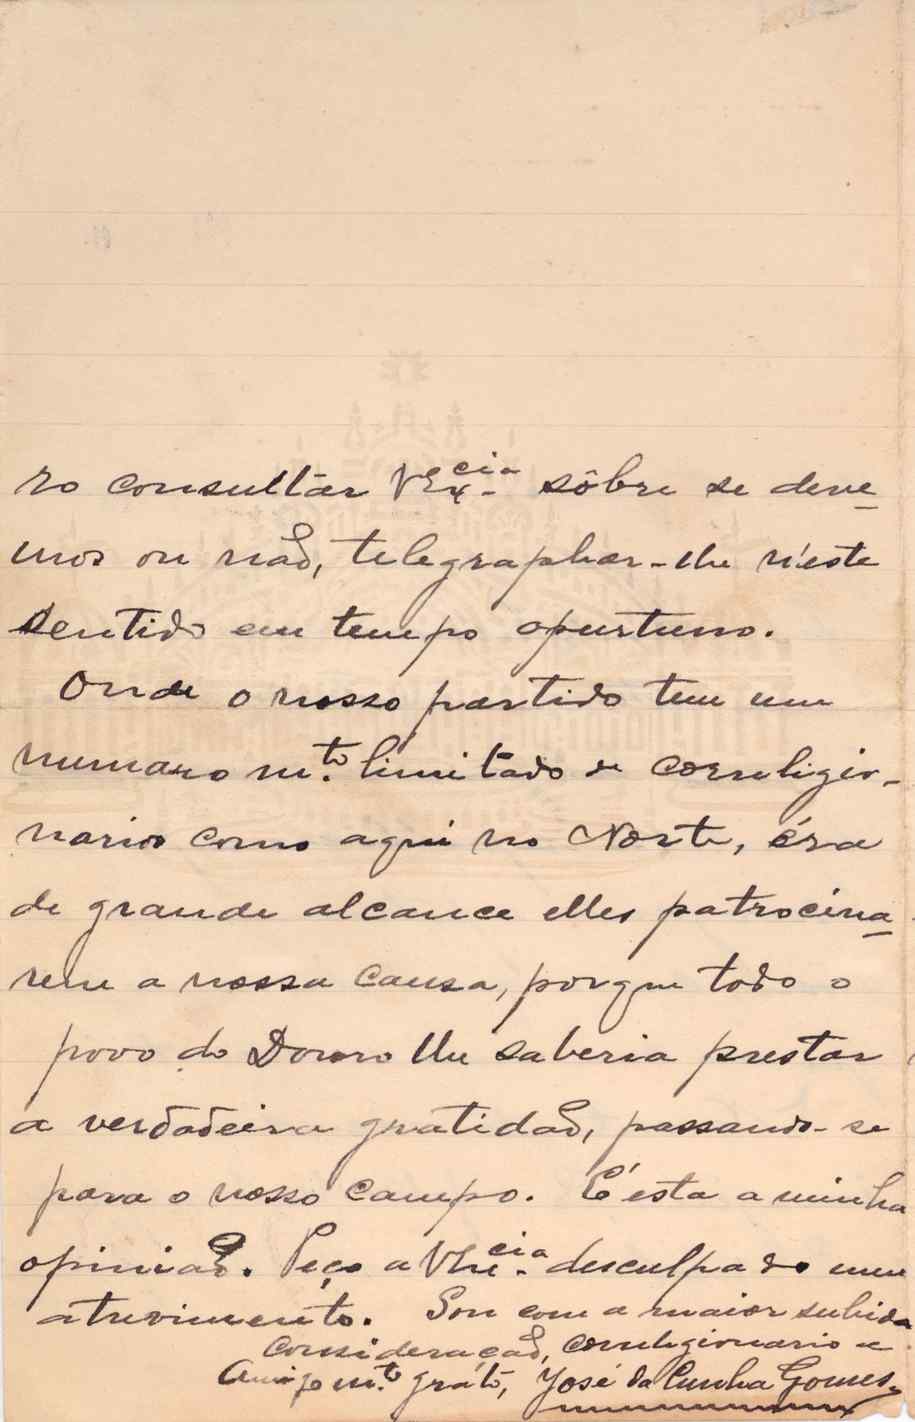 ro consultar VEx.cia sôbre se deve-
mos ou não, telegraphar-lhe n'este
sentido em tempo opurtuno.
Onde o nosso partido tem um
numaro m.to limitado de correligio-
narios como aqui no Norte, éra
de grande alcance elles patrocina-
rem a nossa causa, porque todo o
povo do Douro lhe saberia prestar
a verdadeira gratidão, passando-se
para o nosso campo. É esta a minha
opinião. Peço a VEx.cia desculpa do meu
atrevimento. Sou com a maior subida
consideração, correligionario e
Amigo m.to gráto, José da Cunha Gomes.